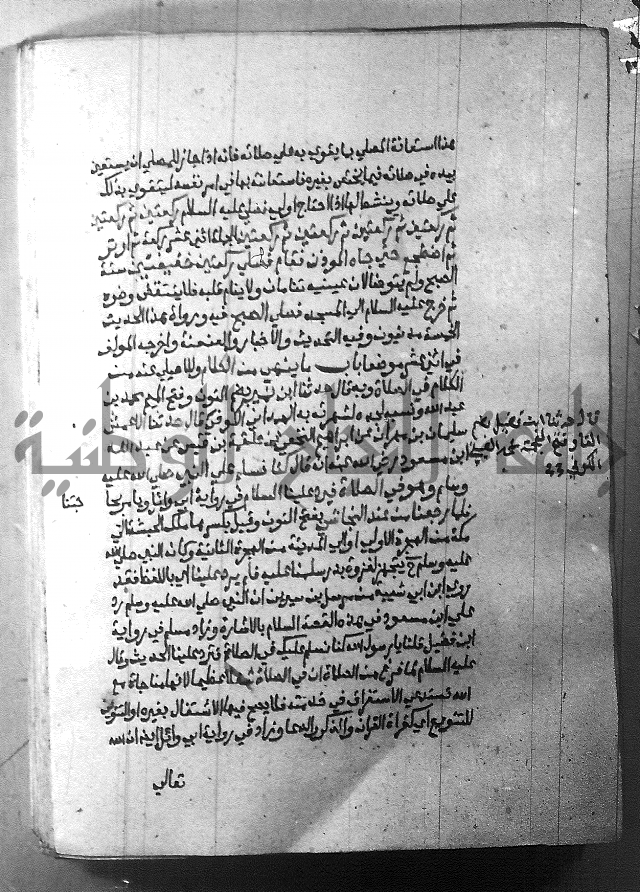 هذا استعانة المصلي بما يتقوى به علي صلاته فانه اذا جاز للمصلي ان يستعين
بيده في صلاته فيما يختص بغيره فاستعانته بها في امر نفسه ليتقوى بذلك
علي صلاته وينشط لها اذا احتاج اولي فصلي عليه السلام ركعتين ثم ركعتين
ثم ركعتين ثم ركعتين ثم ركعتين ثم ركعتين الجملة اثني عشر ركعة ثم اوتر
ثم اضطجع حتي جاه الموذن فقام فصلي ركعتين خفيفتين سنة
الصبح ولم يتوضا لان عينيه تنامان ولا ينام قلبه فلا ينتقض وضوه
ثم خرج عليه السلام الي المسجد فصلي الصبح فيه ورواة هذا الحديث
الخمسة مدنيون وفيه التحديث والاخبار والعنعنة واخرجه المولف
في اثني عشر موضعا باب ما ينهي من الكلام وللاصيلي عنه من
الكلام في الصلاة وبه قال حدثنا ابن نمير بضم النون وفتح الميم محمد بن
عبد الله ونسبه لجده لشهرته به الهمداني الكوفي قال حدثنا الاعمش
سليمان بن مهران عن ابراهيم النخعي عن علقمة بن قيس عن عبد الله
ابن مسعود رضي الله عنه انه قال كنا نسلم علي النبي صلى الله عليه
وسلم وهو في الصلاة فيرد علينا السلام في رواية ابي وائل ويامر بحا
جتنا
فلما رجعنا من عند النجاشي بفتح النون وقيل بكسرها ملك الحبشة الي
مكة من الهجرة الاولي او الي المدينة من الهجرة الثانية وكان النبي صلي الله
عليه وسلم ح يتجهز لغزوة بدر سلمنا عليه فلم يرد علينا اي باللفظ فقد
روي ابن ابي شيبة من مرسل بن سيرين ان النبي صلي الله عليه وسلم رد
علي ابن مسعود في هذه القصة السلام بالاشارة وزاد مسلم في رواية
ابن فضيل قلنا يا رسول الله كنا نسلم عليك في الصلاة فترد علينا الحديث وقال
عليه السلام لما فرغ من الصلاة ان في الصلاة شغلا عظيما لانها مناجاة مع
الله تستدعي الاستغراق في خدمته فلا يصح فيها الاشتغال بغيره او التنوين
للتنويع اي كقراة القران والذكر والدعا وزاد في رواية ابي وائل ايضا ان الله
تعالي
قال حدثنا ابن فضيل بضم
الفا وفتح المعجمة محمد الضبي
الكوفي
جامعة الملك الوطنية